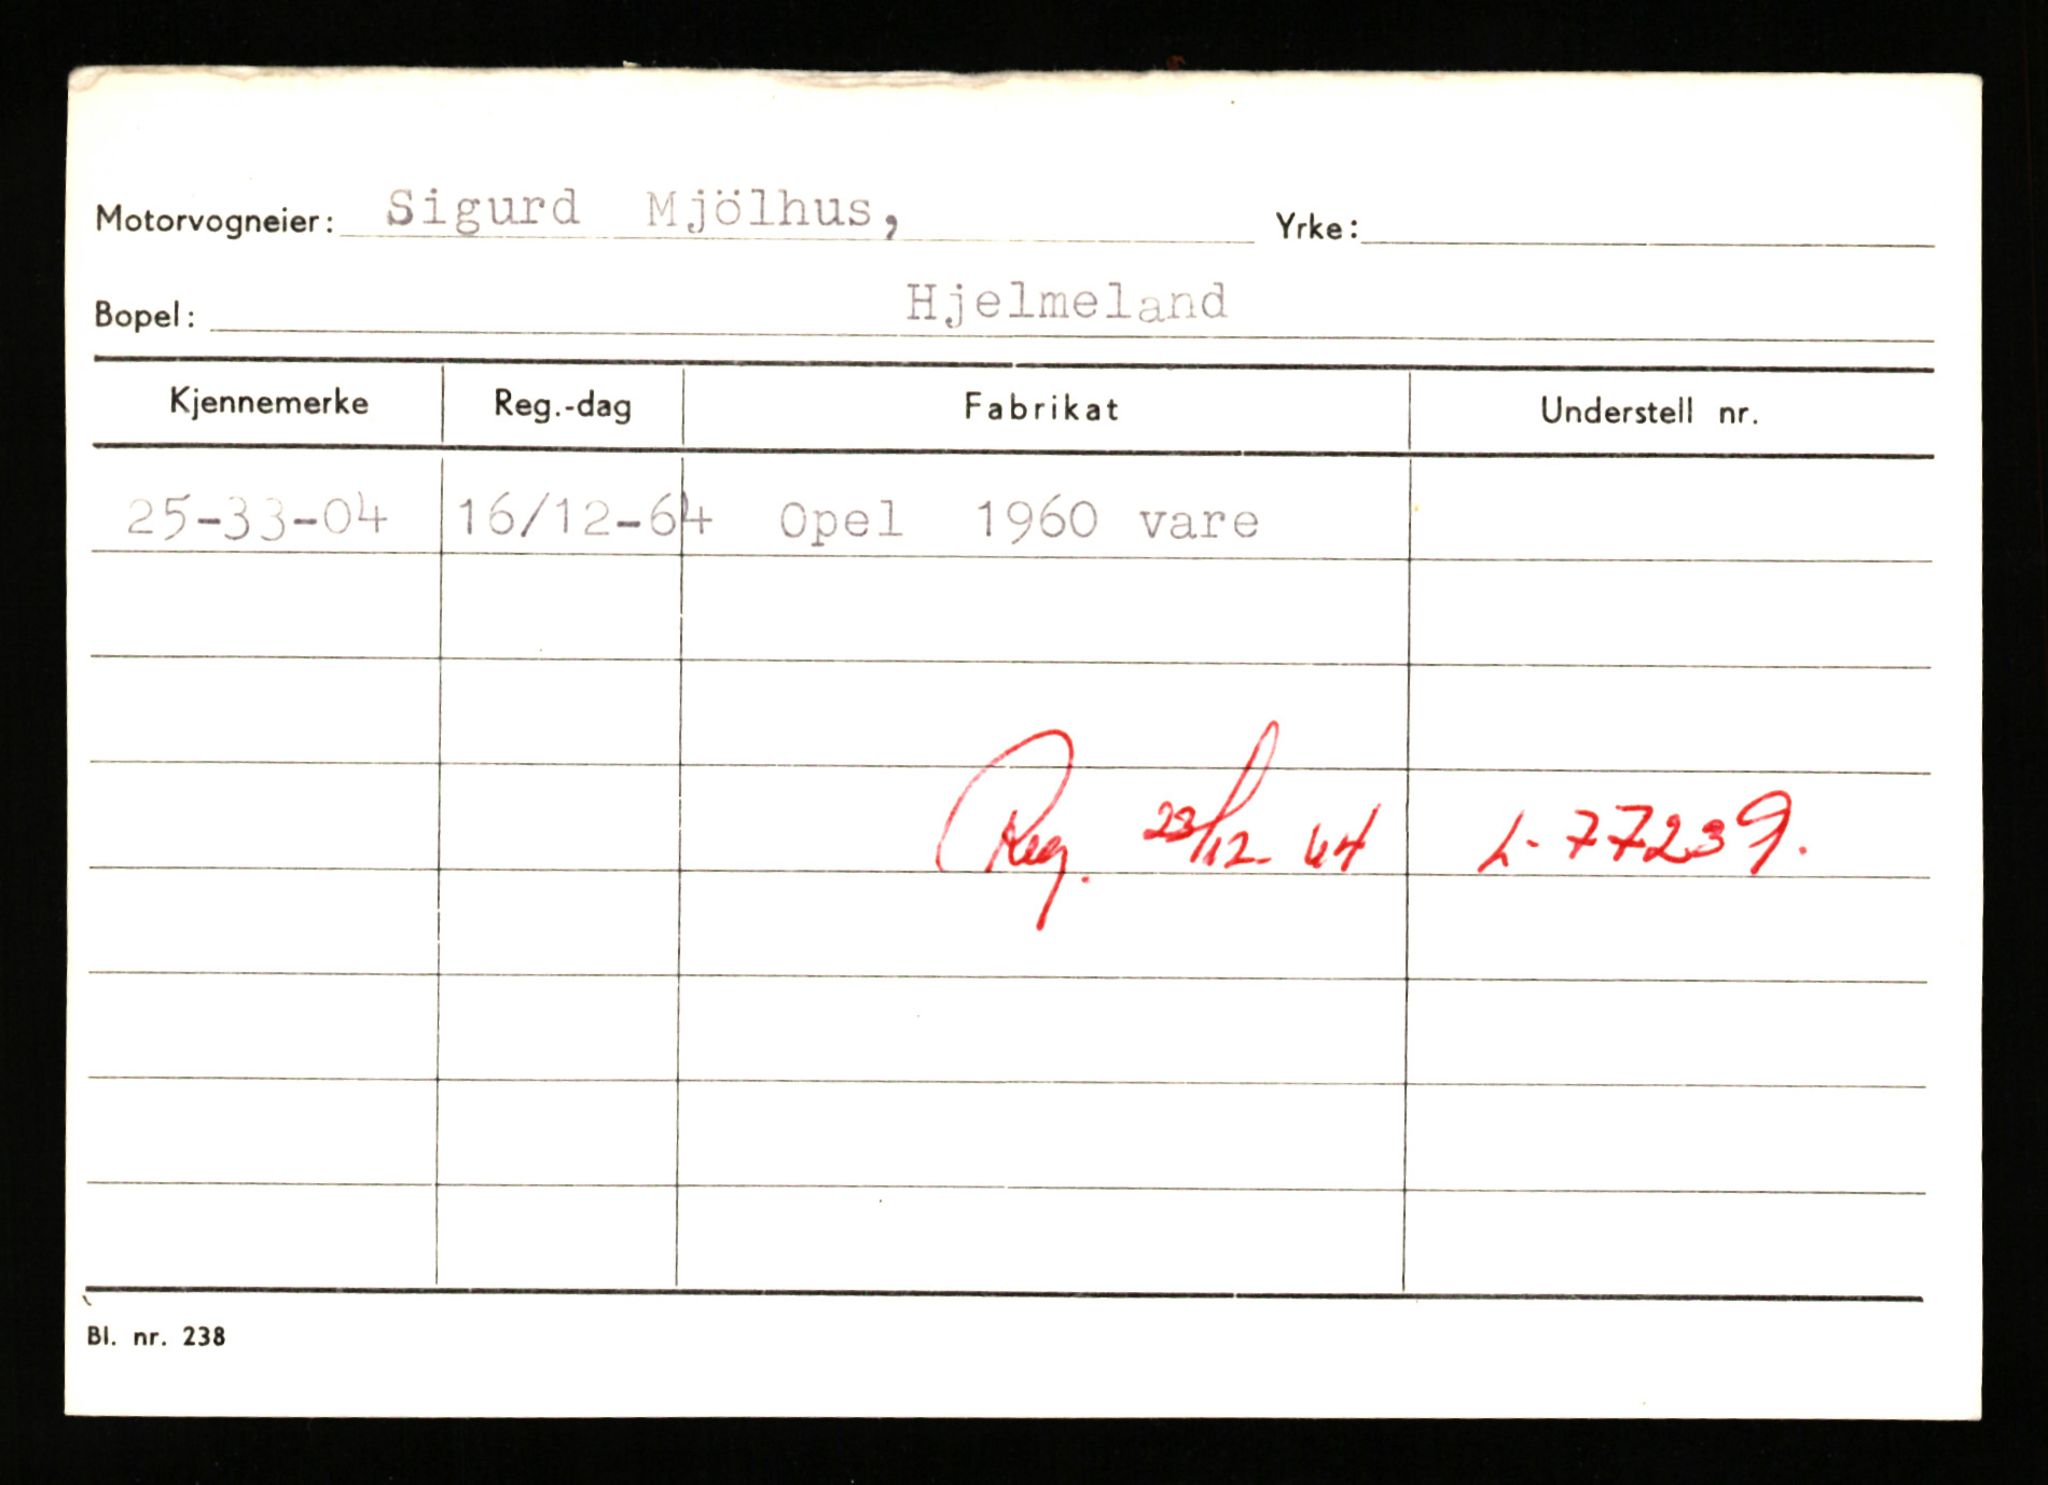 Motorvogneier: Sigurd Mjölhus, Yrke:
Bopel: Hjelmeland
Kjennemerke Reg.-dag Fabrikat Understell nr.
25-33-04 16/12-64 Opel 1960 vare
Reg. 23/12-64 L-77239.
Bl. nr. 238